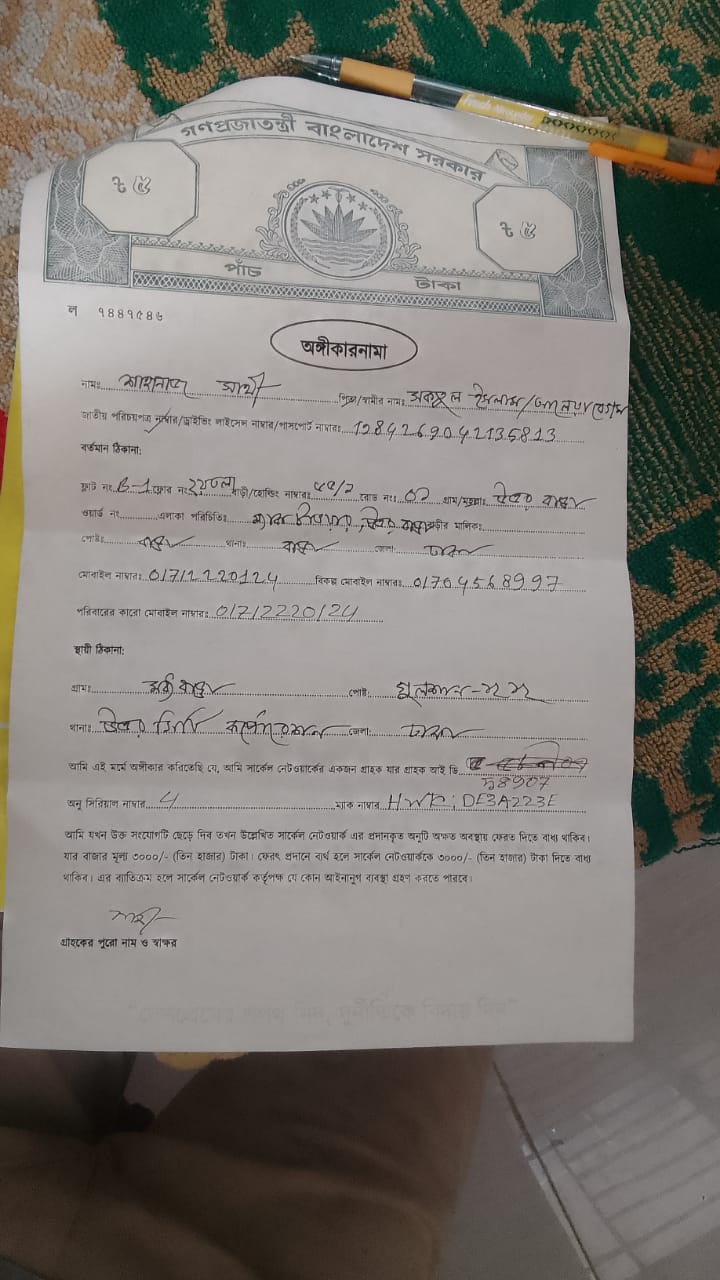 গণপ্রজাতন্ত্রী বাংলাদেশ সরকার
৳ ৫
৳ ৫
পাঁচ টাকা
ল ৭৪৪৭৫৪৬
অঙ্গীকারনামা
নামঃ শাহনাজ সাথী পিতা/স্বামীর নামঃ ইসলাম/
জাতীয় পরিচয়পত্র নাম্বার/ড্রাইভিং লাইসেন্স নাম্বার/পাসপোর্ট নাম্বারঃ 1984269042135813
বর্তমান ঠিকানা:
ফ্লাট নং B-1 ফ্লোর নং বাড়ী/হোল্ডিং নাম্বারঃ রোড নংঃ 02 গ্রাম/মহল্লাঃ বাড্ডা
ওয়ার্ড নং এলাকা পরিচিতিঃ বাড্ডা বাড়ীর মালিকঃ
পোষ্টঃ বাড্ডা থানাঃ বাড্ডা জেলা ঢাকা
মোবাইল নাম্বারঃ 01712220124 বিকল্প মোবাইল নাম্বারঃ 01704568997
পরিবারের কারো মোবাইল নাম্বারঃ 01712220124
স্থায়ী ঠিকানা:
গ্রামঃ বাড্ডা পোষ্ট গুলশান-১২১২
থানাঃ সিটি কর্পোরেশন জেলা ঢাকা
আমি এই মর্মে অঙ্গীকার করিতেছি যে, আমি সার্কেল নেটওয়ার্কের একজন গ্রাহক যার গ্রাহক আই ডি
8907
অনু সিরিয়াল নাম্বার 4 ম্যাক নাম্বার HWTC; DE3A223E
আমি যখন উক্ত সংযোগটি ছেড়ে দিব তখন উল্লেখিত সার্কেল নেটওয়ার্ক এর প্রদানকৃত অনুটি অক্ষত অবস্থায় ফেরত দিতে বাধ্য থাকিব।
যার বাজার মূল্য ৩০০০/- (তিন হাজার) টাকা। ফেরৎ প্রদানে ব্যর্থ হলে সার্কেল নেটওয়ার্ককে ৩০০০/- (তিন হাজার) টাকা দিতে বাধ্য
থাকিব। এর ব্যতিক্রম হলে সার্কেল নেটওয়ার্ক কর্তৃপক্ষ যে কোন আইনানুগ ব্যবস্থা গ্রহণ করতে পারবে।
গ্রাহকের পুরো নাম ও স্বাক্ষর